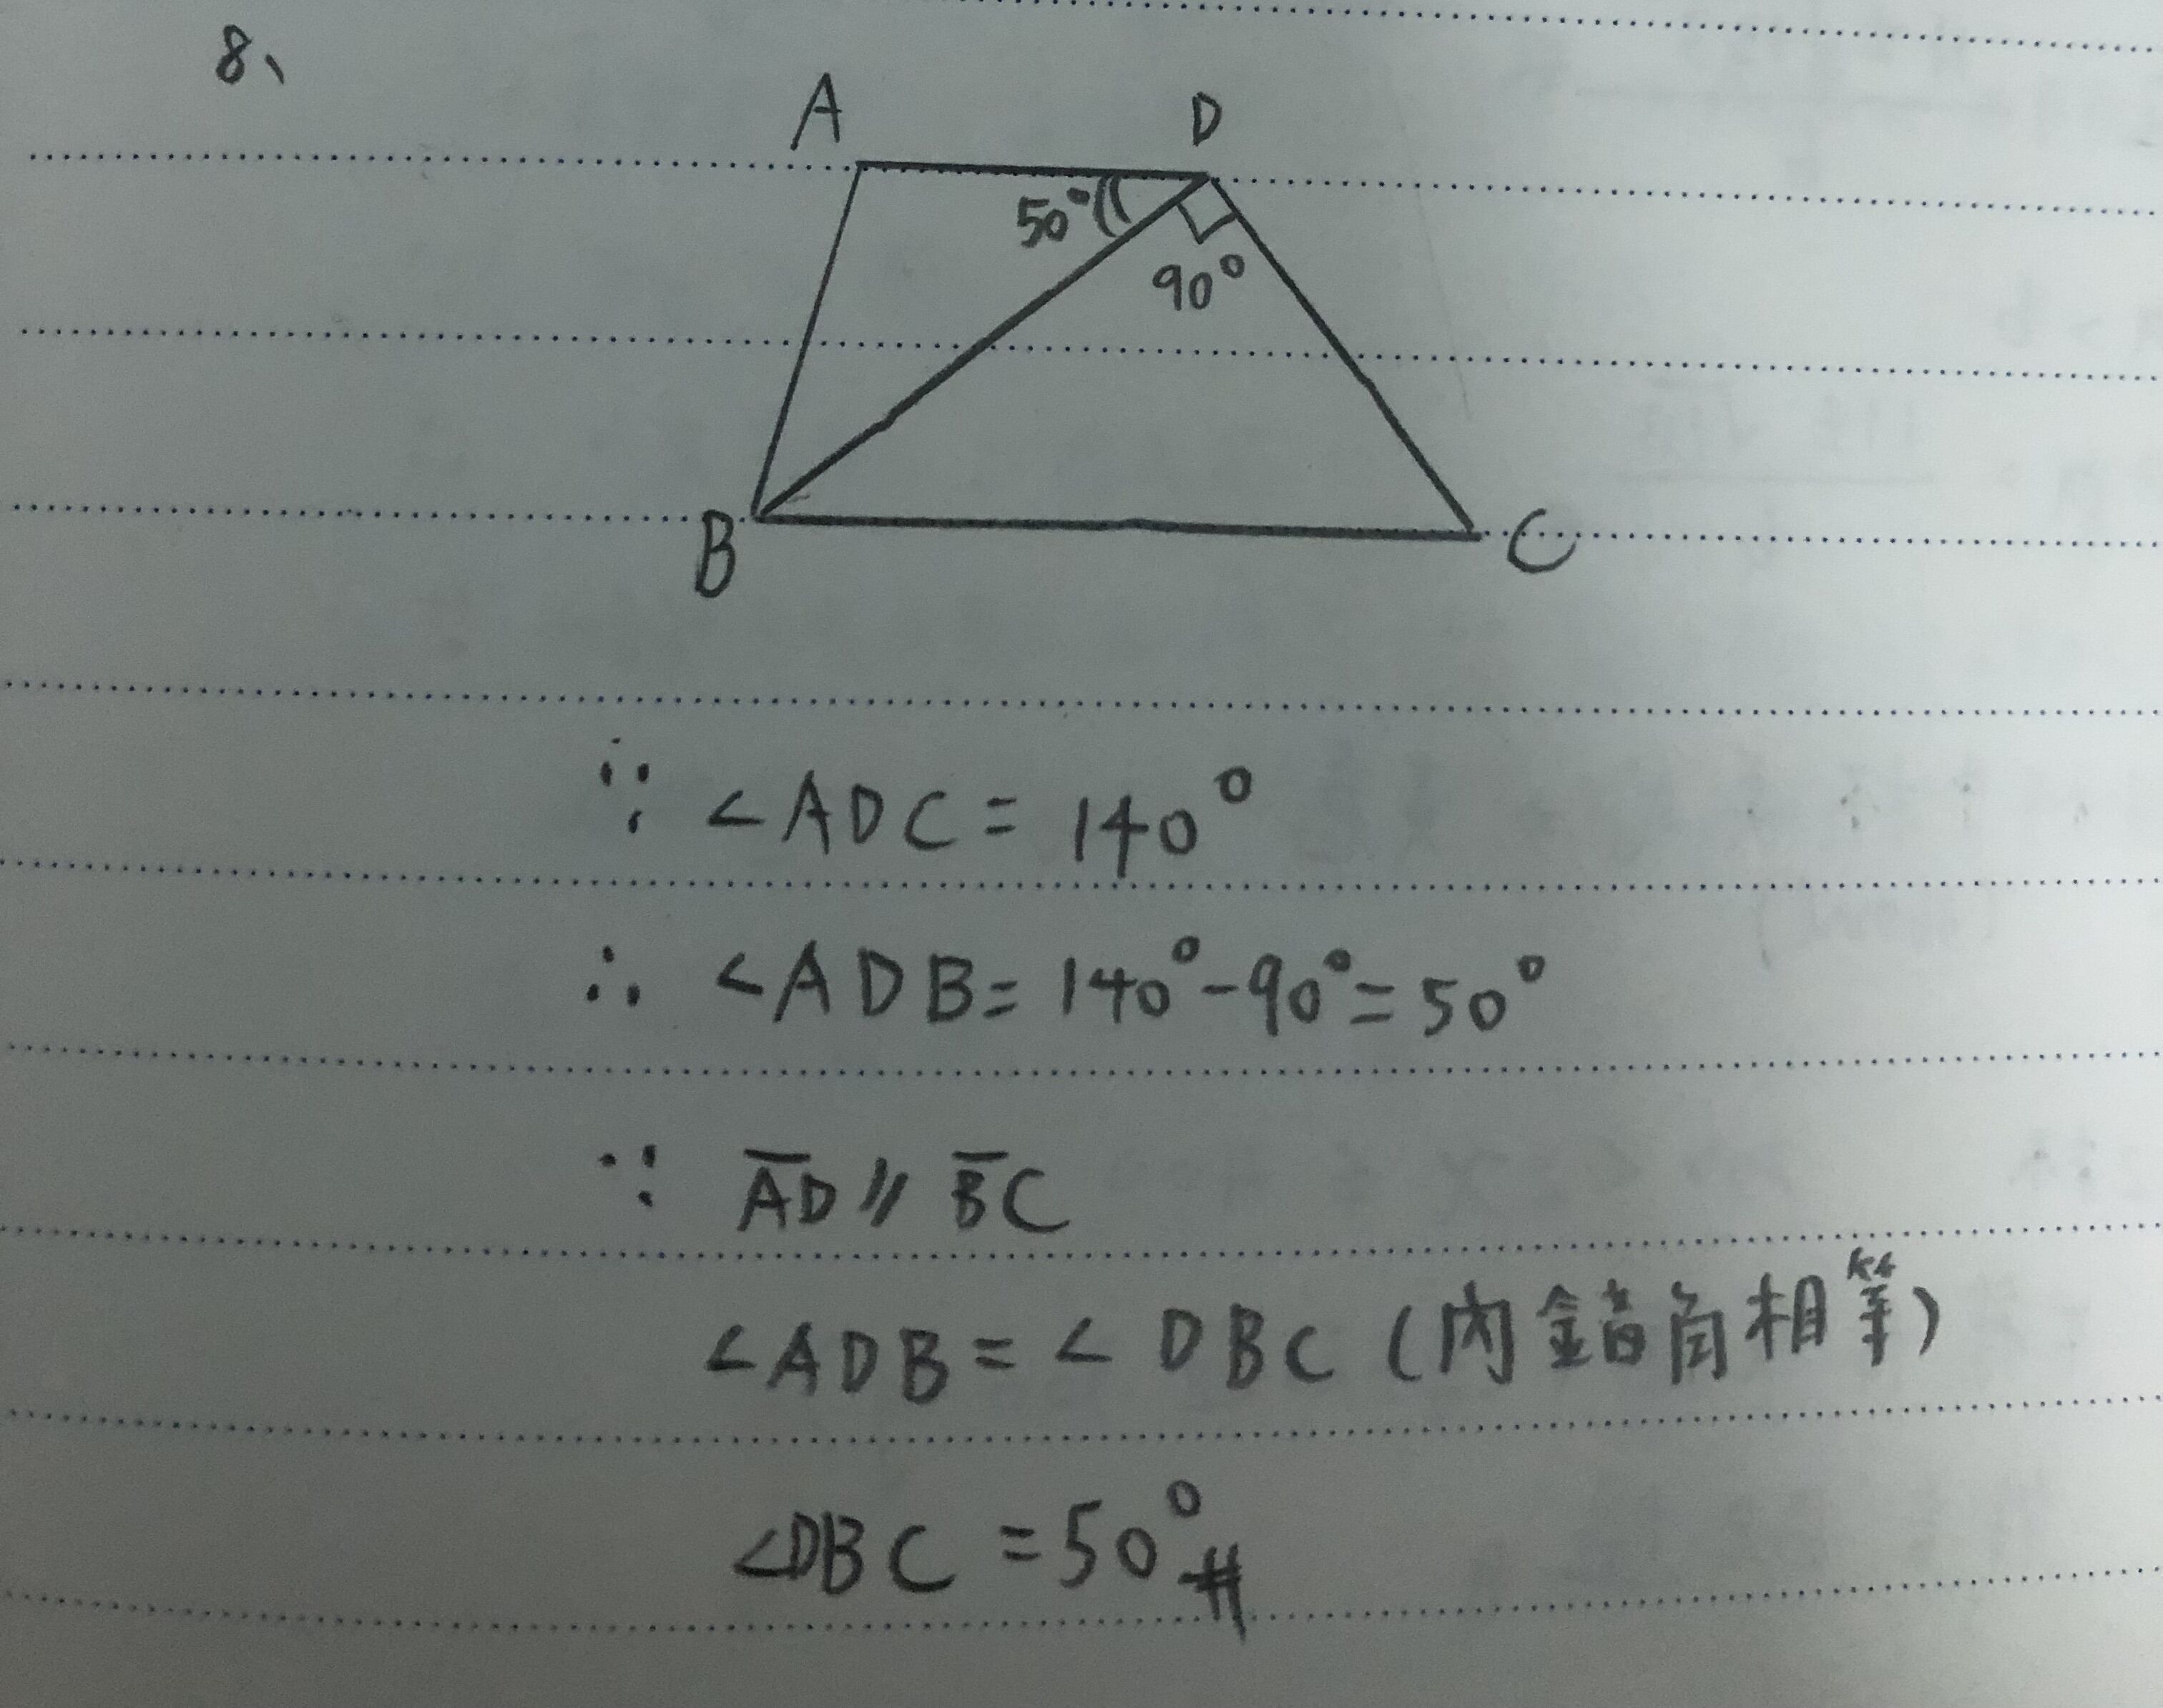 8、
A D
50° 90°
B C
∵ ∠ADC = 140°
∴ ∠ADB = 140° - 90° = 50°
∵ A̅D̅ // B̅C̅
∠ADB = ∠DBC (內錯角相等)
∠DBC = 50° #